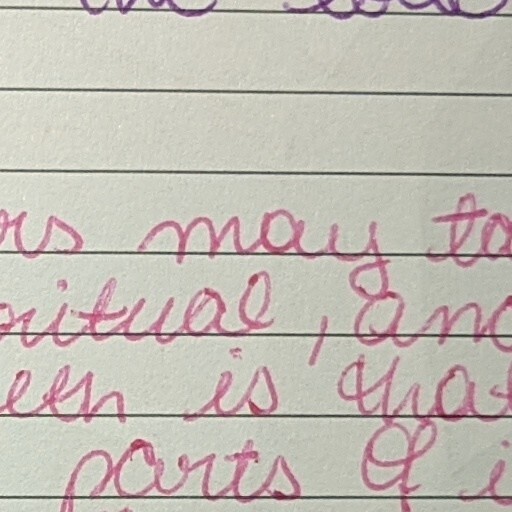 the soul
rs may to
ritual, and
een is that
parts of i